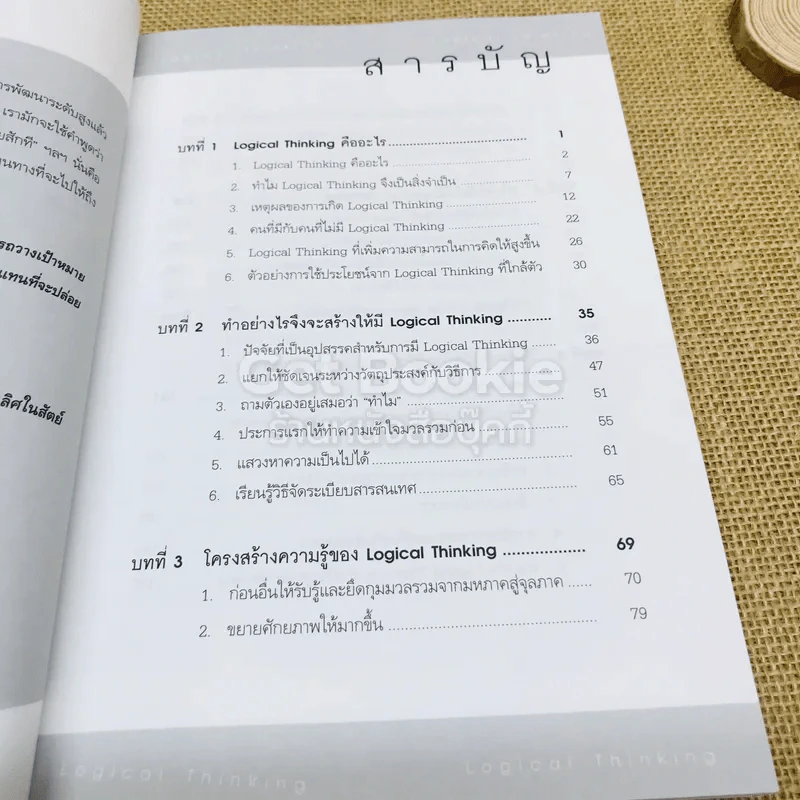 ารพัฒนาระดับสูงแล้ว
เรามักจะใช้คำพูดว่า
ยสักที" ฯลฯ นั่นคือ
นทางที่จะไปให้ถึง
รถวางเป้าหมาย
แทนที่จะปล่อย
ลิศในสัตย์
สารบัญ
บทที่ 1 Logical Thinking คืออะไร 1
1. Logical Thinking คืออะไร 2
2. ทำไม Logical Thinking จึงเป็นสิ่งจำเป็น 7
3. เหตุผลของการเกิด Logical Thinking 12
4. คนที่มีกับคนที่ไม่มี Logical Thinking 22
5. Logical Thinking ที่เพิ่มความสามารถในการคิดให้สูงขึ้น 26
6. ตัวอย่างการใช้ประโยชน์จาก Logical Thinking ที่ใกล้ตัว 30
บทที่ 2 ทำอย่างไรจึงจะสร้างให้มี Logical Thinking 35
1. ปัจจัยที่เป็นอุปสรรคสำหรับการมี Logical Thinking 36
2. แยกให้ชัดเจนระหว่างวัตถุประสงค์กับวิธีการ 47
3. ถามตัวเองอยู่เสมอว่า "ทำไม" 51
4. ประการแรกให้ทำความเข้าใจมวลรวมก่อน 55
5. แสวงหาความเป็นไปได้ 61
6. เรียนรู้วิธีจัดระเบียบสารสนเทศ 65
บทที่ 3 โครงสร้างความรู้ของ Logical Thinking 69
1. ก่อนอื่นให้รับรู้และยึดกุมมวลรวมจากมหภาคสู่จุลภาค 70
2. ขยายศักยภาพให้มากขึ้น 79
Get Bookie
ร้านหนังสือบุ๊คกี้
Logical Thinking
Logical Thinking